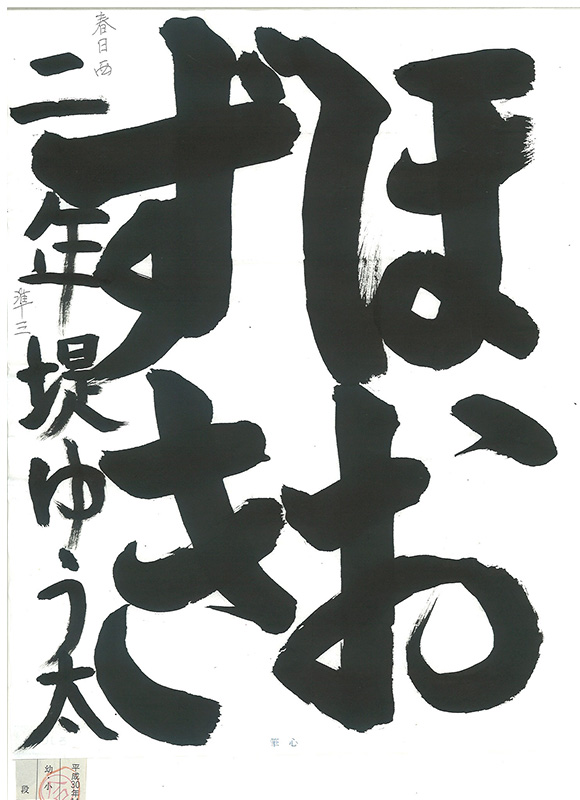 ほお
ずき
春日西
二年堤ゆう太
準三
平成30年
幼・小
段